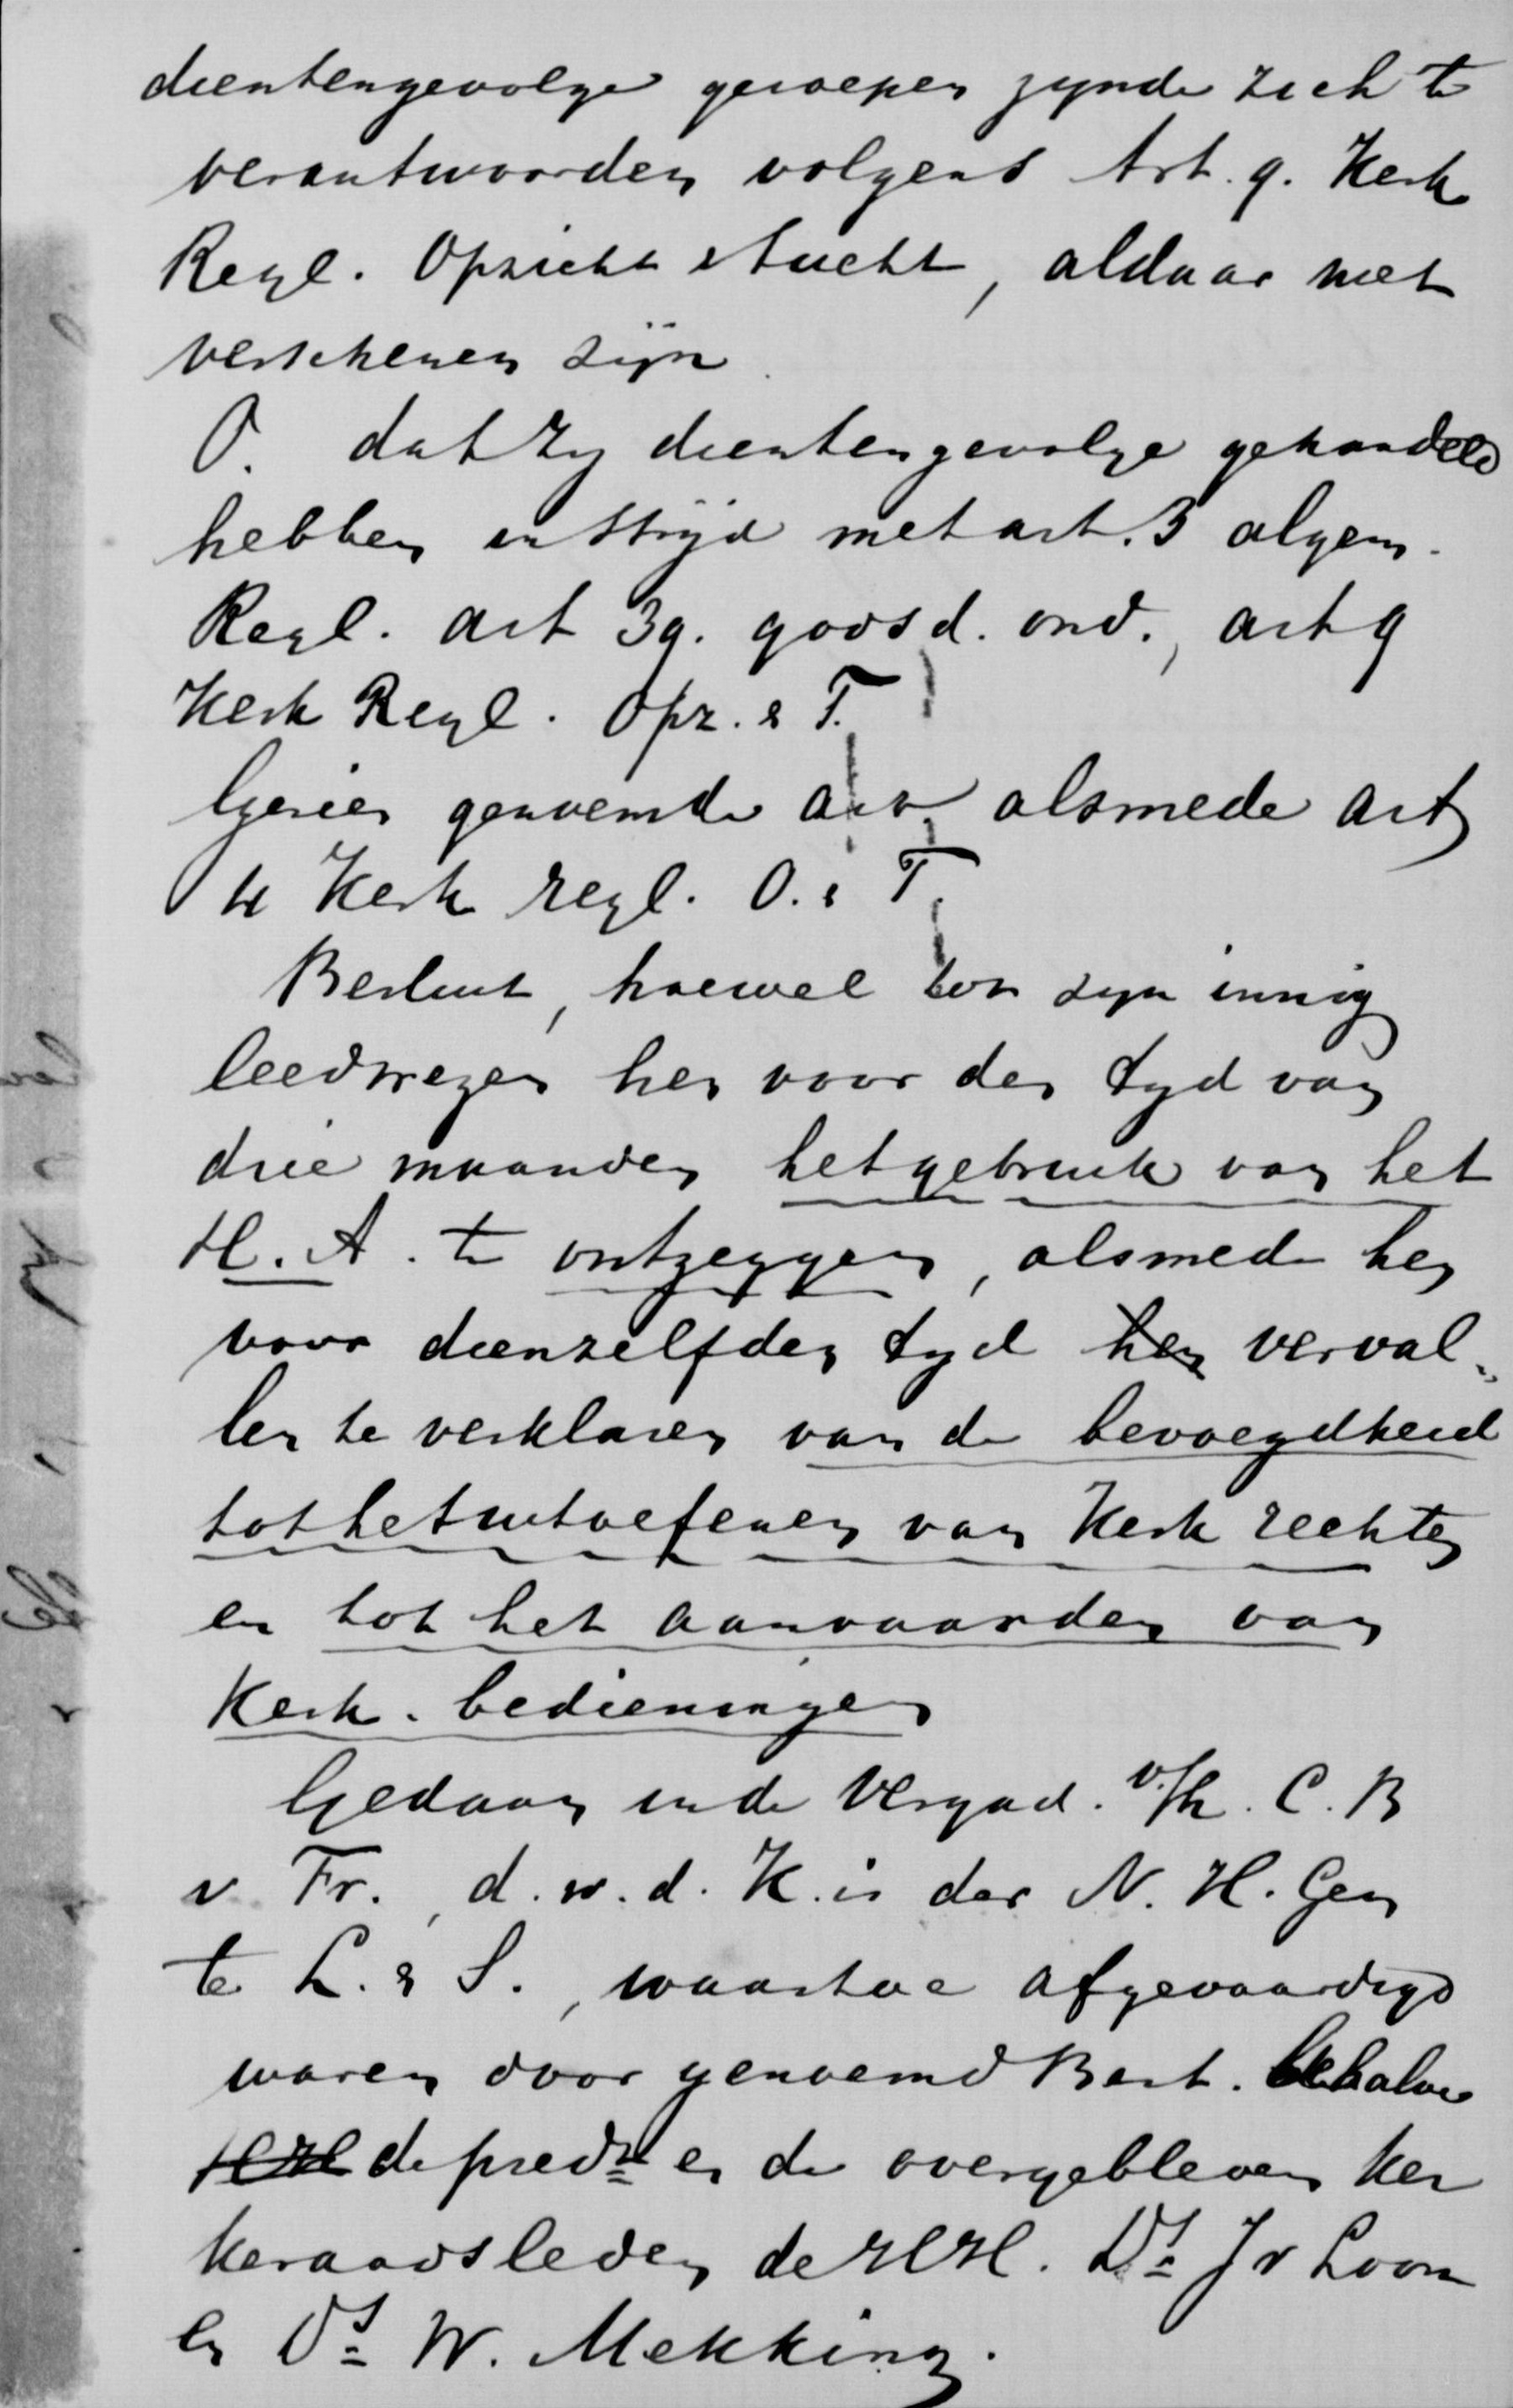 dientengevolge geroepen zynde zich te
verantwoorden volgens Art. 9. Kerk
Regl. Opzicht & tucht, aldaar niet
verschenen zijn.
O. dat zy dientengevolge gehandeld
hebben in strijd met art. 3 algem.
Regl. art 39. godsd. ond., art 9
Kerk Regl. Opz. & T.
Gezien genoemde art alsmede art
4 Kerk regl. O. & T.
Besluit, hoewel tot zyn innig
leedwezen hen voor den tyd van
drie maanden het gebruik van het
H. A. te ontzeggen, alsmede hen
voor dienzelfden tyd hen verval„
len te verklaren van de bevoegdheid
tot het uitoefenen van Kerk rechten
en tot het aanvaarden van
Kerk. bedieningen
Gedaan in de Vergad. v/h. C. B
v Fr., d. w. d. K. is der N. H. Gem
te L. & S., waartoe afgevaardigd
waren door genoemd Best. behalve
HH de predn en de overgebleven ker
keraadsleden de HH. Ds J v Loon
en Ds W. Mekking.